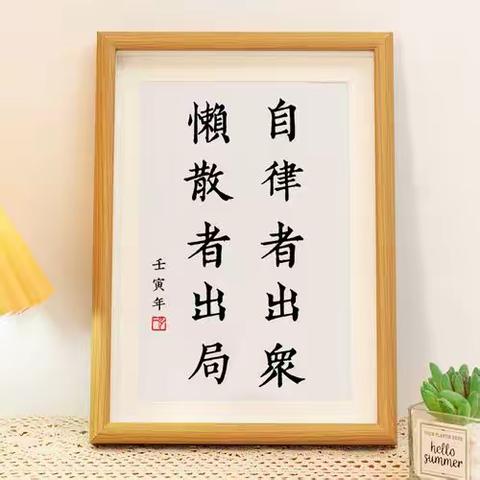 自律者出眾
懶散者出局
壬寅年
hello
summer